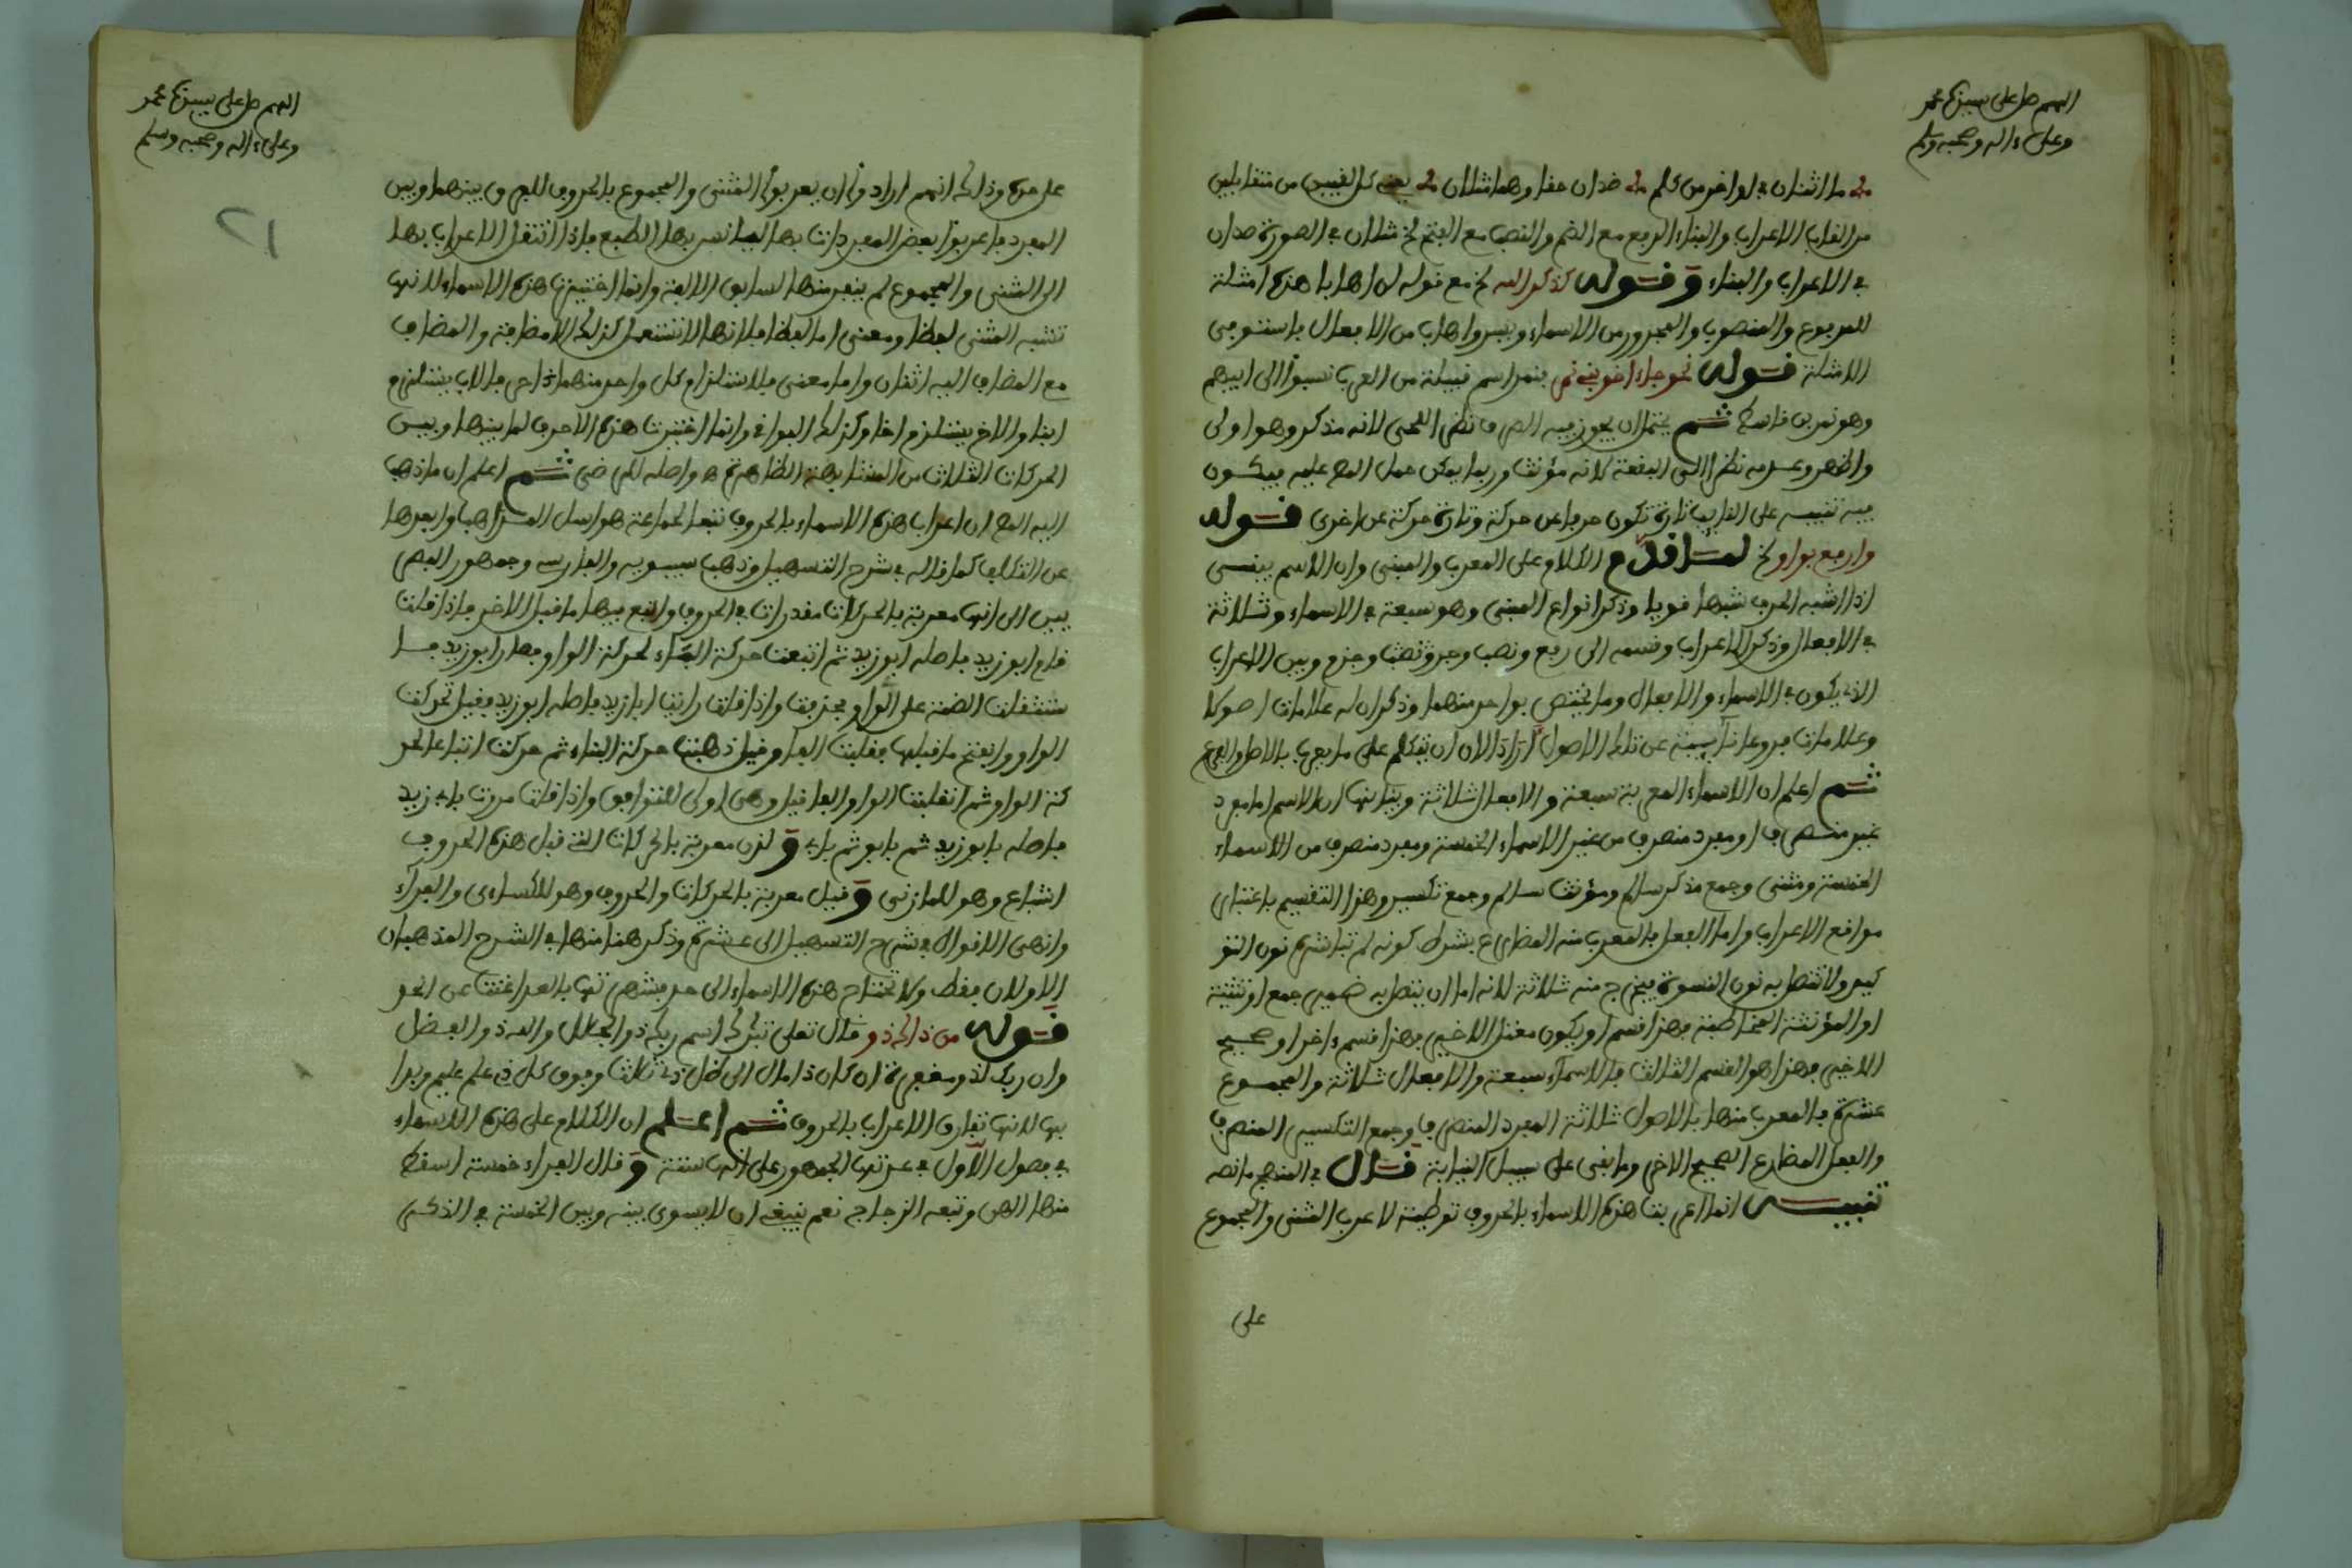 اللهم صل على سيدنا محمد
وعلى ءاله وصحبه وسلم
ما اثنان في اواخر من كلم ضدان حقا وهما مثلان يعني كل لقبين من متقابلين
من القاب الاعراب والبناء الرفع مع الضم والنصب مع الفتح الخ مثلان في الصورة ضدان
في الاعراب والبناء وقوله كذكر الله الخ مع قوله هذه امثلة
للمرفوع والمنصوب والمجرور من الاسماء ويسر من الافعال فاستوفى
الامثلة قوله نحو جا اخو بني نمر بنمر اسم قبيلة من العرب نسبوا الى ابيهم
وهو نمر بن قاسط ثم يحتمل ان يجوز فيه الصرف نظرا للحي لانه مذكر وهو اولى
واظهر وعدمه نظرا الى البقعة لانه مؤنث وربما يمكن حمل المص عليه فيكون
فيه تنبيه على ان النيابة تارة تكون حرفا عن حركة وتارة حركة عن اخرى قوله
وارفع بواو الخ لما قدم الكلام على المعرب والمبنى وان الاسم يبنى
اذا اشبه الحرف شبها قويا وذكر انواع المبنى وهو سبعة في الاسماء وثلاثة
في الافعال وذكر الاعراب وقسمه الى رفع ونصب وجر وجزم وبين الاعراب
الذي يكون في الاسماء والافعال وما يختص بواحد منهما وذكر ان له علامات اصولا
وعلامات فروعا نايبة عن تلك الاصول اراد الان ان يتكلم على ما يعرب بالاصل والفرع
ثم اعلم ان الاسماء المعربة سبعة والافعال ثلاثة وبيانها ان الاسم اما مفرد
غير منصرف او مفرد منصرف من غير الاسماء الخمسة ومفرد منصرف من الاسماء
الخمسة ومثنى وجمع مذكر سالم ومؤنث سالم وجمع تكسير وهذا التقسيم باعتبار
مواقع الاعراب واما الفعل فالمعرب منه المضارع بشرط كونه لم تباشره نون التو
كيد ولا تتصل به نون النسوة فيخرج منه ثلاثة لانه اما ان يتصل به ضمير جمع او تثنية
او المؤنثة المخاطبة فهذا قسم او يكون معتل الاخير فهذا قسم ءاخر او صحيح
الاخير فهذا هو القسم الثالث فالاسماء سبعة والافعال ثلاثة والمجموع
عشرة فالمعرب منها بالاصول ثلاثة المفرد المنصرف وجمع التكسير المنصرف
والفعل المضارع الصحيح الاخر وما بقى على سبيل النيابة قال في المنهج ما نصه
تنبيه انما اعربت هذه الاسماء بالحروف توطية لاعراب المثنى والمجموع
على
اللهم صل على سيدنا محمد
وعلى ءاله وصحبه وسلم
٢١
على حده وذالك انهم ارادوا ان يعربوا المثنى والمجموع بالحروف للفرق بينهما وبين
المفرد فاعربوا بعض المفردات بها ليانس بها الطبع فاذا انتقل الاعراب بها
الى المثنى والمجموع لم ينفر منها لسابق الالفة وانما اختيرت هذه الاسماء لانها
تشبه المثنى لفظا ومعنى اما لفظا فلانها لا تستعمل كذلك الا مضافة والمضاف
مع المضاف اليه اثنان واما معنى فلاستلزام كل واحد منهما ءاخر فالاب يستلزم
ابنا والاخ يستلزم اخا وكذلك البواقى وانما اختيرت هذه الاحرف لما بينها وبين
الحركات الثلاث من المناسبة الظاهرة ه واصله للمرضى ثم اعلم ان ما ذهب
اليه المص ان اعراب هذه الاسماء بالحروف تبعا لجماعة هو اسهل المذاهب وابعدها
عن التكلف كما قاله في شرح التسهيل وذهب سيبويه والفارسي وجمهور البصر
يين الى انها معربة بالحركات مقدرات في الحروف واتبع فيها ما قبل الاخر فاذا قلت
قام ابو زيد فاصله ابو زيد ثم اتبعت حركة الباء لحركة الواو فصار ابو زيد فا
ستثقلت الضمة على الواو فحذفت واذا قلت رايت ابا زيد فاصله ابو زيد فقيل تحركت
الواو وانفتح ما قبلها فقلبت الفا وقيل ذهبت حركة الباء ثم حركت اتباعا لحر
كة الواو ثم انقلبت الواو الفا قيل وهى اولى للتوافق واذا قلت مررت بابى زيد
فاصله بابو زيد ثم بابو ثم بابى وقيل معربة بالحركات التي قبل هذه الحروف
اشباع وهو للمازنى وقيل معربة بالحركات والحروف وهو للكساءى والفراء
وانهى الاقوال في شرح التسهيل الى عشرة وذكر هنا منها في الشرح المذهبان
الاولان فقط ولا تحتاج هذه الاسماء الى حد فشهرتها بالعد اغنت عن الحد
قوله من ذاك ذو قال تعلى تبرك اسم ربك ذو الجلل والله ذو الفضل
وان ربك لذو مغفرة ان كان ذا مال الى ظل ذى ثلاث وفوق كل ذى علم عليم وبدا
بها لانها تفارق الاعراب بالحروف ثم اعلم ان الكلام على هذه الاسماء
في فصول الاول في عدتها الجمهور على انها ستة وقال الفراء خمسة اسقط
منها الهن وتبعه الزجاج نعم ينبغى ان لا يسوى بينه وبين الخمسة في الذكر